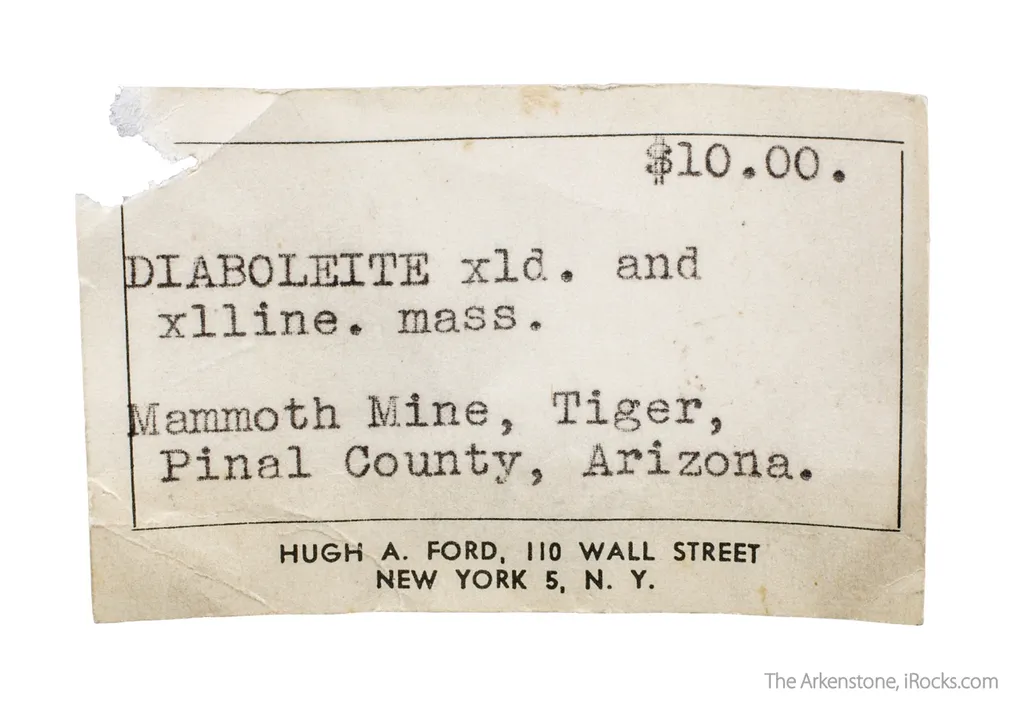 $10.00.
DIABOLEITE xld. and
xlline. mass.
Mammoth Mine, Tiger,
Pinal County, Arizona.
HUGH A. FORD, 110 WALL STREET
NEW YORK 5, N. Y.
The Arkenstone, iRocks.com